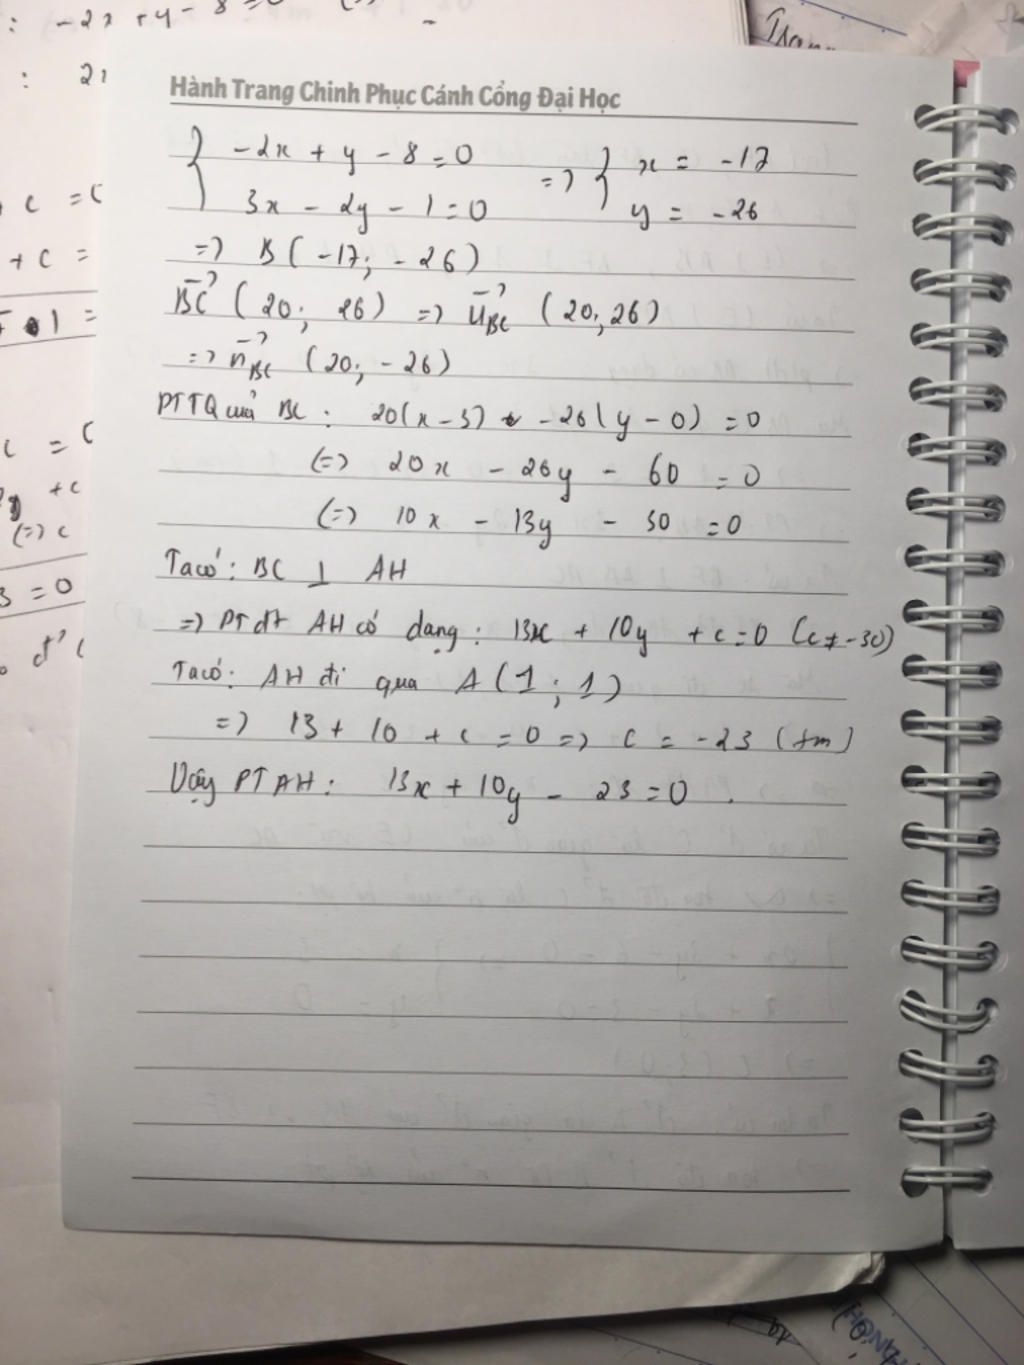 : -2x + y - 8 = 0
: 2x
Hành Trang Chinh Phục Cánh Cổng Đại Học
{ -2x + y - 8 = 0 => { x = -17
3x - 2y - 1 = 0 y = -26
=> B ( -17 ; -26 )
BC→ ( 20 ; 26 ) => u→BC ( 20 ; 26 )
=> n→BC ( 20 ; - 26 )
PTTQ của BC : 20(x - 3) - 26 ( y - 0 ) = 0
(=> 20x - 26y - 60 = 0
(=> 10x - 13y - 30 = 0
Ta có : BC ⊥ AH
=> PT đt AH có dạng : 13x + 10y + c = 0 (c ≠ -30)
Ta có : AH đi qua A ( 1 ; 1 )
=> 13 + 10 + c = 0 => c = -23 (tm)
Vậy PT AH : 13x + 10y - 23 = 0 .
c = 0
+ c =
1 =
c = 0
+c
(=) c
3 = 0